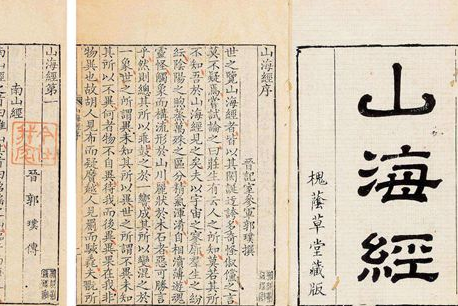 山海經
槐蔭草堂藏版
山海經序
晉記室參軍郭璞撰
世之覽山海經者皆以其閎誕迂誇多奇怪俶儻之言
莫不疑焉嘗試論之曰莊生有云人之所知莫若其所
不知吾於山海經見之矣夫以宇宙之寥廓羣生之紛
紜陰陽之煦蒸萬殊之區分精氣渾淆自相濆薄遊魂
靈怪觸象而構流形於山川麗狀於木石者惡可勝言
乎然則總其所以乖鼓之於一響成其所以變混之於
一象世之所謂異未知其所以異世之所謂不異未知
其所以不異何者物不自異待我而後異異果在我非
物異也故胡人見布而疑黂越人見罽而駭毳夫觀所
山海經第一
晉郭璞傳
南山經
南山經之首曰